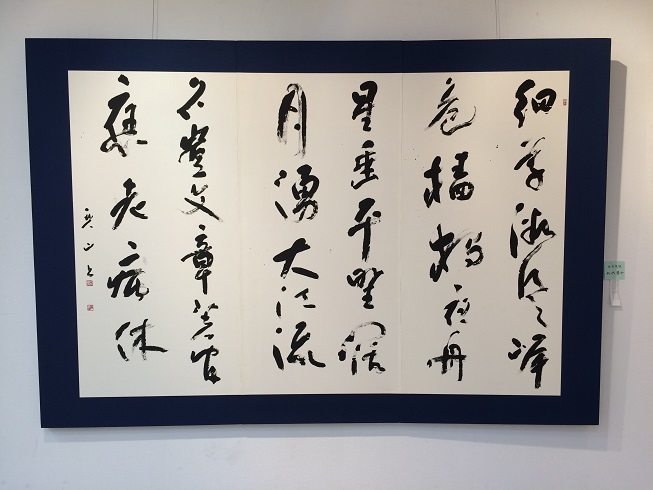 細草微風岸
危檣独夜舟
星垂平野闊
月湧大江流
名豈文章著官
應老病休